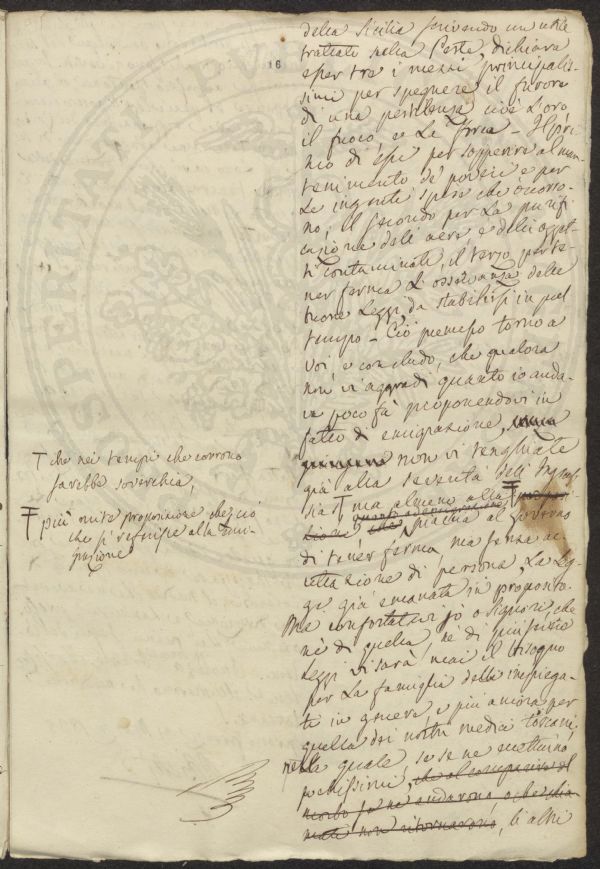 16
della Sicilia scrivendo un utile
trattato sulla Peste, dichiara
esser tre i mezzi principalis-
simi per spegnere il furore
di una pestilenza cioè L'oro
il fuoco e La Forca - Il pri-
mo di essi per sopperire al man-
tenimento de' poveri e per
Le ingenti spese che occorro-
no, il secondo per La purifi
cazione dell'aere, e degli ogget-
ti contaminati, il terzo per te-
ner ferma L'osservanza delle
buone Leggi da stabilirsi in tal
tempo - Ciò premesso torno a
voi, e concludo, che qualora
non vi aggradi quanto io anda-
va poco fà proponendovi in
fatto di emigrazione,
non vi tenghiate
già alla severità dell'
ma almeno alla
al Governo
di tener ferma, ma senza ac-
cettazione di persona, La Leg-
ge già emanata in proposito.
Ma confortatevi o Signori, che
nè di quella, nè di
Leggi vi sarà mai il bisogno
per La famiglia delli impiega-
ti in genere, e più ancora per
quella dei nostri medici toscani
nella quale, se se ne eccettuino
pochissimi,
li altri
che nei tempi che corrono
sarebbe soverchia,
più mite proposizione
che si referisce alla emi-
grazione